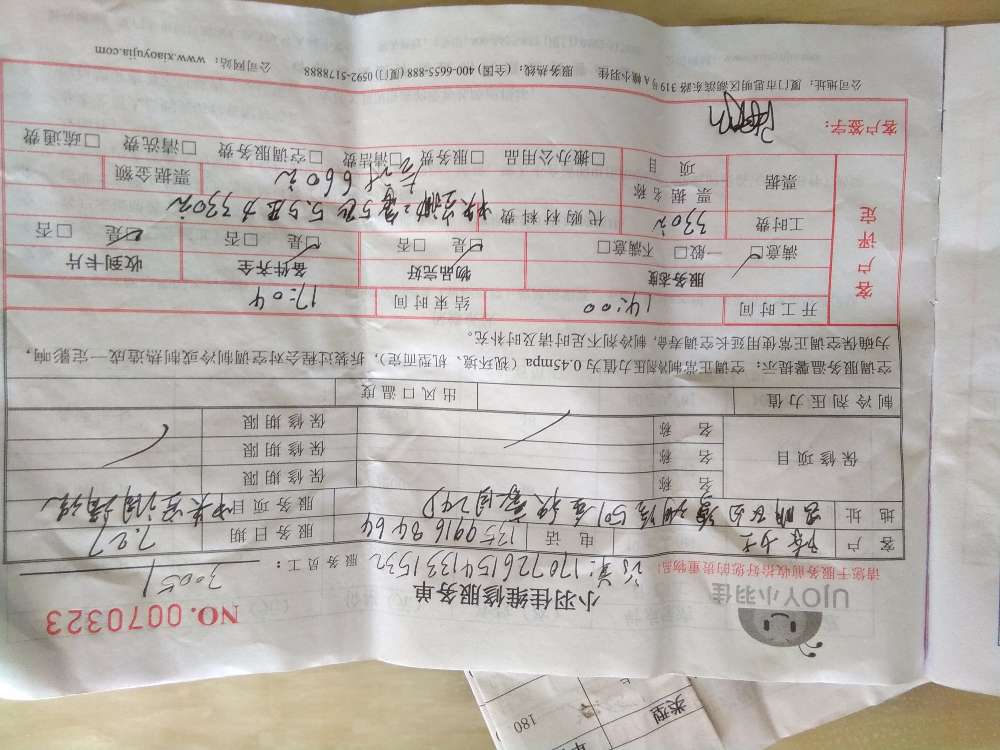 UJOY小羽佳
小羽佳维修服务单
NO. 0070323
请您于服务前收好拾好您的贵重物品!
170726154133 1532
服务员工: 30051
客户
电话 13599168464
服务日期 7.27
地址
服务项目 中央空调清洗
保修项目
名称 保修期限
名称 保修期限
名称 保修期限
制冷剂压力值 出风口温度
空调服务温馨提示: 空调正常制冷剂压力值为0.45mpa (视环境、机型而定), 拆装过程会对空调制冷或制热造成一定影响,
为确保空调正常使用延长空调寿命, 制冷剂不足时请及时补充。
客户评定
开工时间 14:00 结束时间 17:04
服务态度 物品完好 备件齐全 收到卡片
满意☑ 一般□ 不满意□ ☑是 □否 ☑是 □否 ☑是 □否
工时费 330元 代购材料费
票据 票据名称 票据金额
合计 660元
项目 □搬办公用品 □服务费 □清洁费 □空调服务费 □清洗费 □疏通费
客户签字:
公司地址: 厦门市思明区湖滨东路319号A幢小羽佳 服务热线: (全国) 400-6655-888 (厦门) 0592-5178888 公司网站: www.xiaoyujia.com
类型
180